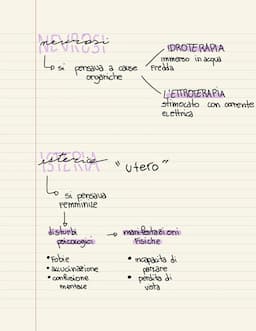 NEVROSI
nevrosi
IDROTERAPIA
immerso in acqua
fredda
si pensava a cause
organiche
L'ETTROTERAPIA
stimolato con corrente
elettrica
ISTERIA
isteria
"utero"
si pensava
femminile
disturbi
psicologici
manifestazioni
fisiche
• Fobie
• allucinazione
• confusione
mentale
• incapacità di
parlare
• perdita di
vista